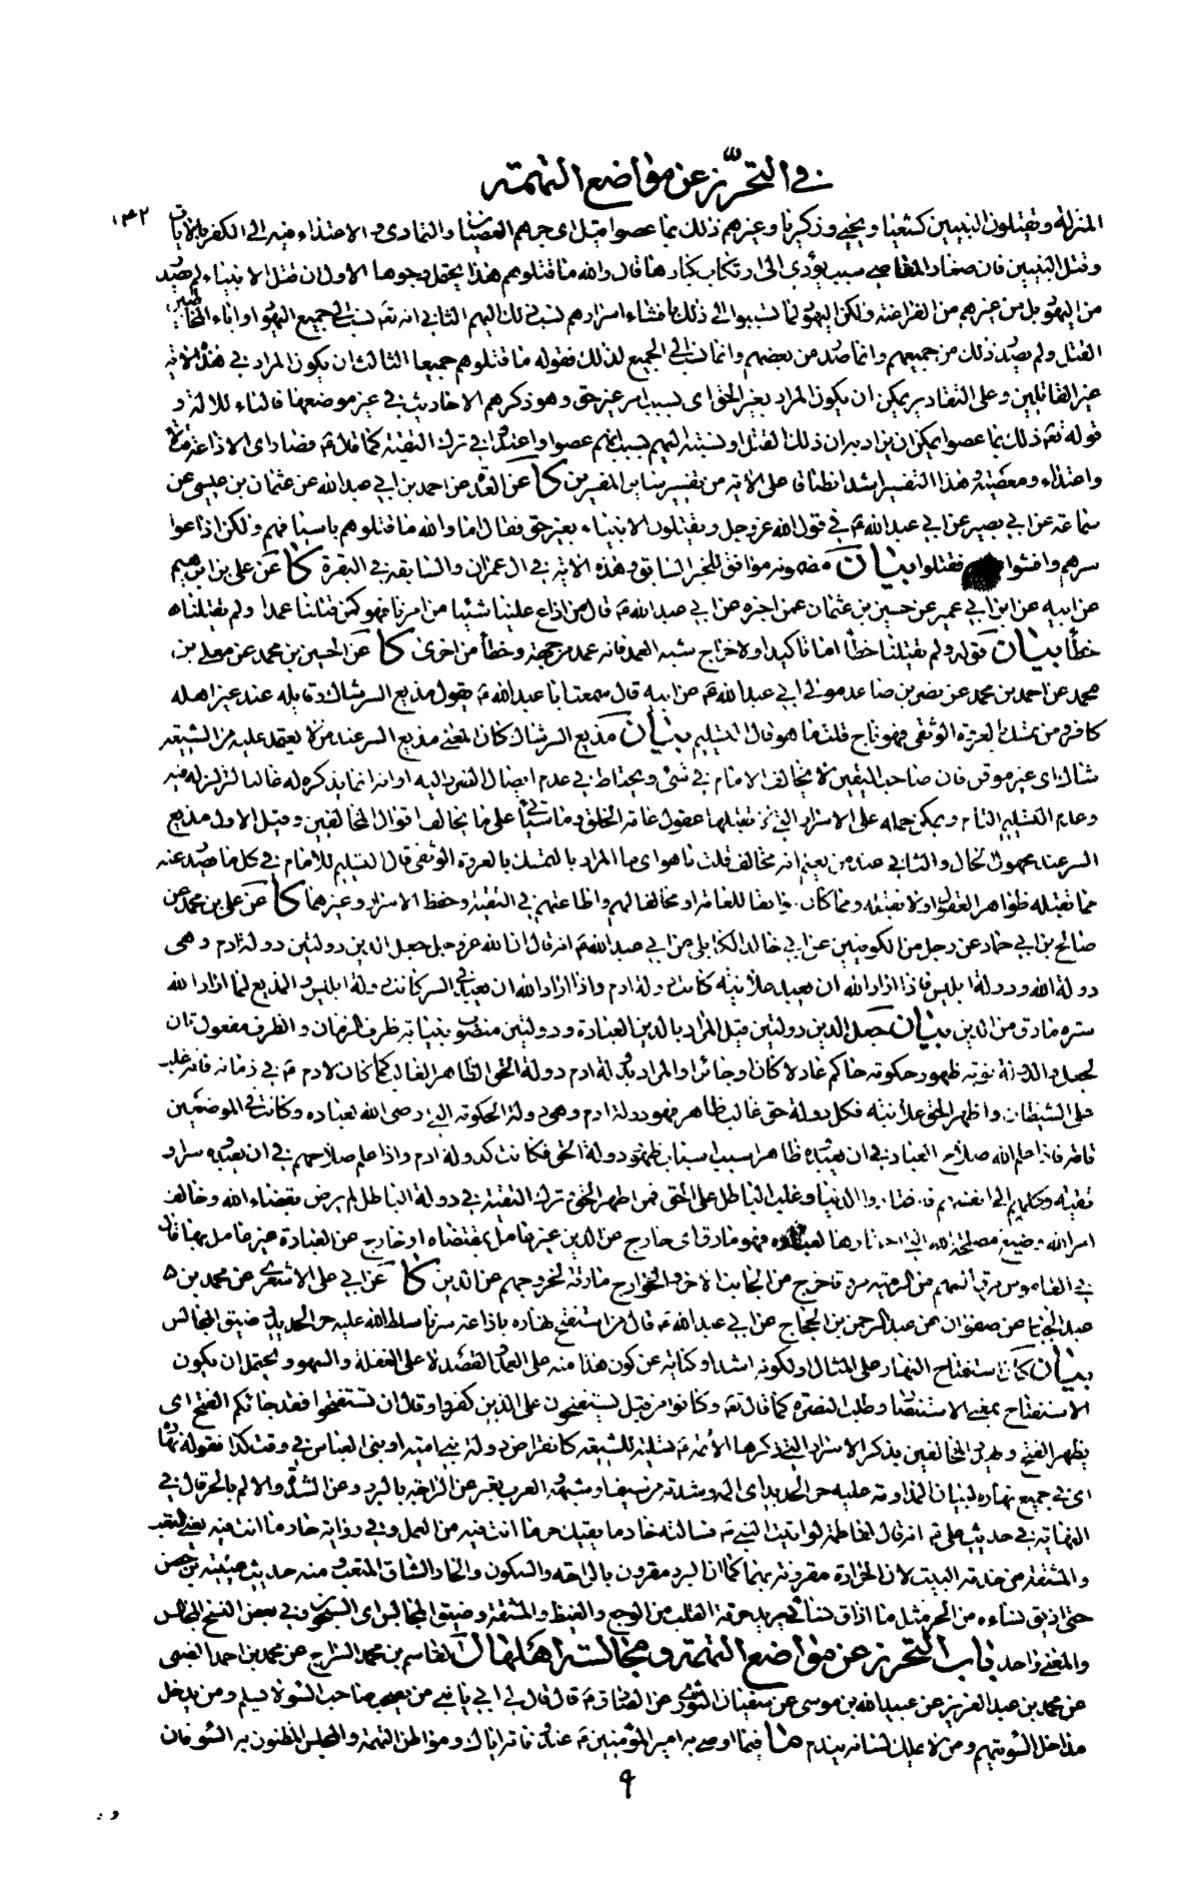 في التحرّز عن مواضع التهمة
١٤٢
المنزلة ويقتلون النبيين كشعيا ويحيى وزكريا وغيرهم ذلك بما عصوا قيل اي جرهم العصيان والتمادي والاعتداء فيه الى الكفر بالايات
وقتل النبيين فان صغار المعاصي سبب يؤدي الى ارتكاب كبارها قال والله ما قتلوهم هذا يحتمل وجوها الاول ان قتل الانبياء لم يصدر
من اليهود بل من غيرهم من الفراعنة ولكن اليهود لما تسببوا الى ذلك بافشاء اسرارهم نسب ذلك اليهم الثاني انه تع نسب الى جميع اليهود او اباء المخاطبين
القتل ولم يصدر ذلك من جميعهم وانما صدر من بعضهم وانما نسب الى الجميع لذلك فقوله ما قتلوهم جميعا الثالث ان يكون المراد في هذه الاية
غير القاتلين وعلى التقادير يمكن ان يكون المراد بغير الحق اي بسبب امر غير حق وهو ذكرهم الاحاديث في غير موضعها فالباء للالة و
قوله تع ذلك بما عصوا يمكن ان يراد به ان ذلك القتل او نسبته اليهم بسبب انهم عصوا واعتدوا في ترك التقية كما قال ع فصار اي الاذاعة قتلا
واعتداء ومعصية وهذا التفسير اشد انطباقا على الاية من تفسير ساير المفسرين كا عن العدة عن احمد بن ابي عبد الله عن عثمان بن عيسى عن
سماعة عن ابي بصير عن ابي عبد الله ع في قول الله عز وجل ويقتلون الانبياء بغير حق فقال اما والله ما قتلوهم باسيافهم ولكن اذاعوا
سرهم وافشوا فقتلوا بيان مضمونه موافق للخبر السابق وهذه الاية في ال عمران والسابقة في البقرة كا عن علي بن ابرهيم
عن ابيه عن ابن ابي عمير عن حسين بن عثمان عمن اخبره عن ابي عبد الله ع قال من اذاع علينا شيئا من امرنا فهو كمن قتلنا عمدا ولم يقتلنا
خطأ بيان قوله ولم يقتلنا خطأ اما تاكيد او لاخراج شبه العمد فانه عمد من جهة وخطأ من اخرى كا عن الحسين بن محمد عن معلى بن
محمد عن احمد بن محمد عن نصر بن صاعد مولى ابي عبد الله ع عن ابيه قال سمعت ابا عبد الله ع يقول مذيع السر شاك وقايله عند غير اهله
كافر ومن تمسك بالعروة الوثقى فهو ناج قلت ما هو قال التسليم بيان مذيع السر شاك كان المعنى مذيع السر عند من لا يعتمد عليه من الشيعة
شاك اي غير موقن فان صاحب اليقين لا يخالف الامام في شئ ويحتاط في عدم ايصال الضرر اليه او انه انما يذكره له غالبا لتزلزله فيه
وعدم التسليم التام ويمكن حمله على الاسرار التي لا تقبلها عقول عامة الخلق وما سيأتي على ما يخالف اقوال المخالفين وقيل الاول مذيع
السر عند مجهول الحال والثاني عند من يعلم انه مخالف قلت ما هو اي ما المراد بالتمسك بالعروة الوثقى قال التسليم للامام في كل ما يصدر عنه
مما تقبله ظواهر العقول او لا تقبله ومما كان موافقا للعامة او مخالفا لهم واطاعتهم في التقية وحفظ الاسرار وغيرهما كا عن علي بن محمد عن
صالح بن ابي حماد عن رجل من الكوفيين عن ابي خالد الكابلي عن ابي عبد الله ع انه قال ان الله عز وجل جعل الدين دولتين دولة ادم وهي
دولة الله ودولة ابليس فاذا اراد الله ان يعبد علانية كانت دولة ادم واذا اراد الله ان يعبد في السر كانت دولة ابليس والمذيع لما اراد الله
ستره مارق من الدين بيان جعل الدين دولتين قيل المراد بالدين العبادة ودولتين منصوب بنيابة ظرف الزمان والظرف مفعول ثان
لجعل والدولة نوبة ظهور حكومة حاكم عادلا كان او جائرا والمراد بدولة ادم دولة الحق الظاهر الغالب كما كان لادم ع في زمانه فانه غلب
على الشيطان واظهر الحق علانية فكل دولة حق غالب ظاهر فهو دولة ادم وهي دولة الحكومة التي رضي الله لعباده وكانت في الموضعين
تامة فاذا علم الله صلاح العباد في ان يعبدوه ظاهرا سبب اسباب ظهور دولة الحق فكانت كدولة ادم واذا علم صلاحهم في ان يعبدوه سرا و
تقية وكلهم الى انفسهم فاختاروا الدنيا وغلب الباطل على الحق فمن اظهر الحق وترك التقية في دولة الباطل لم يرض بقضاء الله وخالف
امر الله وضيع مصلحة الله التي اختارها لعباده فهو مارق اي خارج عن الدين غير عامل بمقتضاه او خارج عن العبادة غير عامل بها قال
في القاموس مرق السهم من الرمية مروقا خرج من الجانب الاخر والخوارج مارقة لخروجهم عن الدين كا عن ابي علي الاشعري عن محمد بن
عبد الجبار عن صفوان عن عبد الرحمن بن الحجاج عن ابي عبد الله ع قال من استفتح نهاره باذاعة سرنا سلط الله عليه حر الحديد وضيق المجالس
بيان كان استفتاح النهار على المثال او لكونه اشد او كناية عن كون هذا منه على العمد والقصد لا على الغفلة والسهو ويحتمل ان يكون
الاستفتاح بمعنى الاستنصار وطلب النصرة كما قال تع وكانوا من قبل يستفتحون على الذين كفروا وقال ان تستفتحوا فقد جائكم الفتح اي
يظهر الفتح ويهدد المخالفين بذكر الاسرار التي ذكرها الائمة ع تسلية للشيعة كانقراض دولة بني امية او بني العباس في وقت كذا فقوله نهاره
اي في جميع نهاره لبيان المداومة عليه حر الحديد اي المه وشدته من سيف او شبهه والعرب تعبر عن الراحة بالبرد وعن الشدة والالم بالحر قال في
النهاية في حديث علي ع انه قال لفاطمة لو اتيت النبي ص فسالته خادما يقيك حر ما انت فيه من العمل وفي رواية حار ما انت فيه يعني التعب
والمشقة من خدمة البيت لان الحرارة مقرونة بهما كما ان البرد مقرون بالراحة والسكون والحار الشاق المتعب ومنه حديث عيينة بن حصن
حتى اذيق نساءه من الحر مثل ما اذاق نسائي يريد حرقة القلب من الوجع والغيظ والمشقة وضيق المجالس اي السجون وفي بعض النسخ المحابس
والمعنى واحد باب التحرز عن مواضع التهمة ومجالسة اهلها ل القاسم بن محمد السراج عن محمد بن احمد الضبي
عن محمد بن عبد العزيز عن عبيد الله بن موسى عن سفيان الثوري عن الصادق ع قال قال لي ابي يا بني من يصحب صاحب السوء لا يسلم ومن يدخل
مداخل السوء يتهم ومن لا يملك لسانه يندم ما فيما اوصى به امير المؤمنين ع عند وفاته اياك ومواطن التهمة والمجلس المظنون به السوء فان
٩